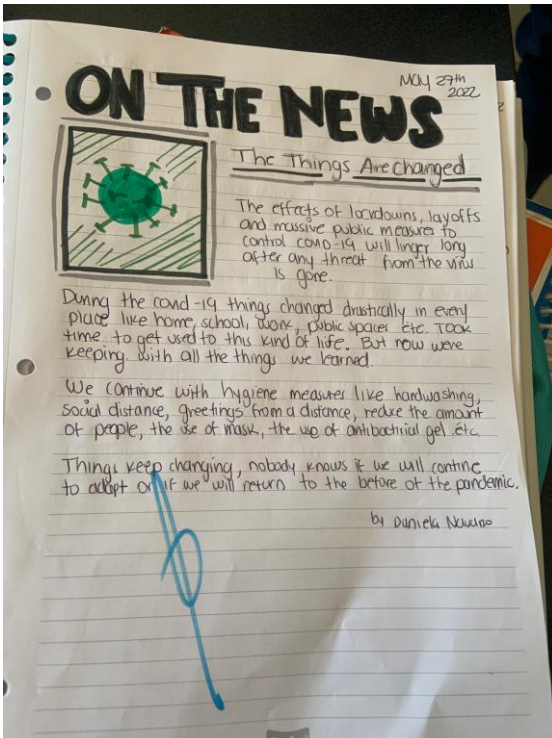 May 27th
2022
ON THE NEWS
The Things Are changed
The effects of lockdowns, layoffs
and massive public measures to
control covid-19 will linger long
after any threat from the virus
is gone.
During the covid-19 things changed drastically in every
place like home, school, work, public spaces etc. Took
time to get used to this kind of life. But now were
keeping with all the things we learned.
We continue with hygiene measures like handwashing,
social distance, greetings from a distance, reduce the amount
of people, the use of mask, the use of antibactrial gel etc.
Things keep changing, nobody knows if we will contine
to adapt or if we will return to the before of the pandemic.
by Daniela